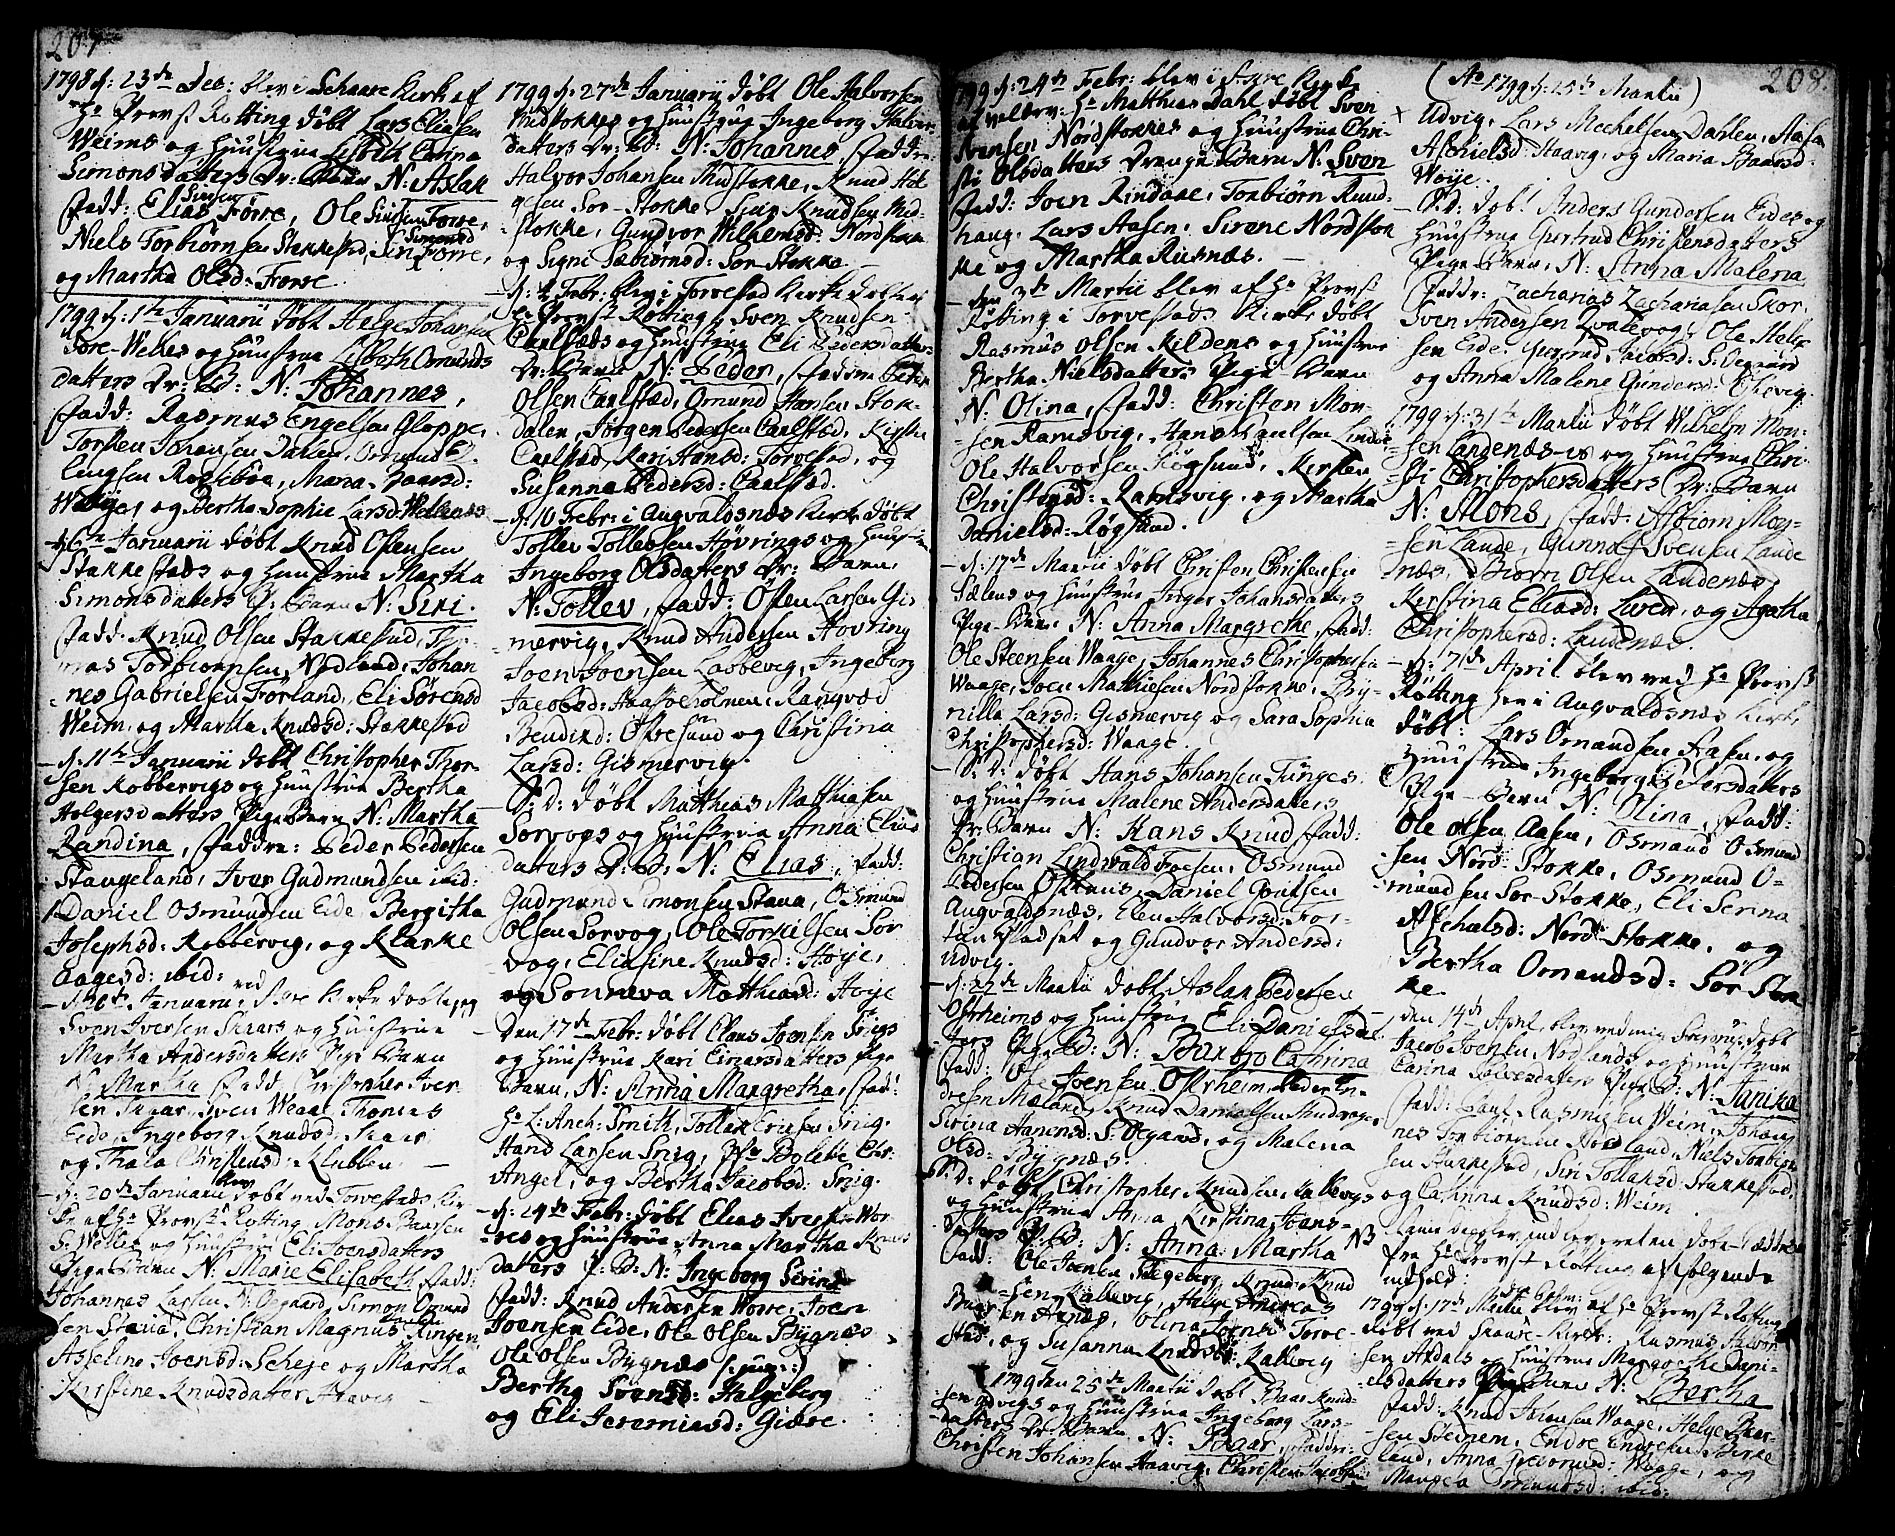 207
1798 d: 23de Dec: blev i Schaare Kirke af
Hr Provst Rotting døbt Lars Eliasen
Weims og Hustrue Lisbeth Carina
Simonsdatters Dr: Barn N: Aslak
Fadd: Elias Simsen Førre, Ole Simsen Førre,
Niels Torbiørnsen Stakkestad, Siri Simonsd Førre,
og Martha Olsd: Førre.
1799 d: 1te Januarii døbt Helge Johansen
Sore-Welles og Hustrue Lisbeth Omunds
datters Dr: B: N: Johannes,
Fadd: Rasmus Engelsen Gloppe,
Torsten Johansen Dahlen, Omund El-
lingsen Røgsebøe, Maria Baarsd:
Woije, og Bertha Sophie Larsd: Welles
d: 6te Januarii døbt Knud Olsen
Stakkestads og Hustrue Martha
Simonsdatters P: Barn N: Siri.
Fadd: Knud Olsen Stakkestad, Tho-
mas Torbiørnsen Nodland, Johan-
nes Gabrielsen Førland, Eli Sørensd
Weim, og Martha Knudsd: Stakkestad
d: 11te Januarii døbt Christopher Thor-
sen Kobbervigs og Hustrue Bertha
Holgersdatters Pige Barn N: Martha
Randina, Faddre: Peder Pedersen
Stangeland, Iver Gudmundsen ibid:
Daniel Osmundsen Eide, Bergitha
Josephsd: Kobbervig, og Klarke
Aagesd: ibid:
Januarii ved Kirke døbte jeg
Sven Iversen Skaars og Hustrue
Martha Andersdatters Pige Barn
N: Martha Fadd: Christopher Iver-
sen Skaar, Sven Weaae, Thomas
Eide, Ingeborg Knudsd: Skaar,
og Thala Christensd: Klubben.
d: 20de Januarii blev døbt ved Torvestads Kir-
ke af Hr Provst Rotting, Mons Baarsen
S: Welles og Hustrue Eli Joensdatters
Pige Barn N: Marie Elisabeth Fadd:
Johannes Larsen N: Oegaard, Simon Omund
sen Staua, Christian Magnus Ringen
Asseline Joensd: Scheje og Martha
Kirstine Knudsdatter Haavig
1799 d: 27de Januarii døbt Ole Halvorsen
Midstokkes og Hustrue Ingeborg Halvor-
datters Dr: B: N: Johannes, Faddre
Halvor Johansen Midstokke, Knud Hel-
gesen Sør-Stokke, Sven Knudsen Mid-
stokke, Gundvor Wilhemsd: Nordstokke
og Signe Sæbiørnsd: Sør-Stokke.
d: 2 Febr: blev i Torvestad Kirke døbt af
Hr Provst Rotting, Sven Knudsen
Carlstads og Hustrue Eli Pedersdatters
Dr: Barn N: Peder, Faddre Peder
Olsen Carlstad, Omund Hansen Stok-
dalen, Jørgen Pedersen Carlstad, Kirsti
Carlstad, Kari Hansd: Torvestad, og
Susanna Pedersd: Carlstad.
d: 10 Febr: i Augvaldsnæs Kirke døbt
Tollev Tollevsen Høvrings og Hustrue
Ingeborg Olsdatters Dr: Barn,
N: Tollev, Fadd: Osten Larsen Gis-
mervig, Knud Andersen Høvring
Joen Joensen Labbevig, Ingeborg
Jacobsd: Haasteholmen, Rangvød
Bendixd: Ohresund og Christina
Larsd: Gismervig.
E: D: døbt Matthias Matthiasen
Sørvogs og Hustrue Anna Elias
datters Dr: B: N: Elias, Fadd:
Gudmund Simonsen Staua, Osmund
Olsen Sørvog, Ole Torkilsen Sør
vog, Eliasine Knudsd: Høije,
og Sonneva Matthiasd: Høije
Den 17de Febr: døbt Claus Joensen Snigs
og Hustrue Kari Einarsdatters Pige
Barn, N: Anna Margretha, Fadd:
Hr L: Anch: Smith, Tollak Ericsen Snig,
Hans Larsen Snig, Bolette Chr:
Angel, og Bertha Jacobsd: Snig.
d: 24de Febr: døbt Elias Iversen Wor-
res og Hustrue Anna Martha Knuds
datters P: B: N: Ingeborg Serine
Fadd: Knud Andersen Worre, Joen
Joensen Eide, Ole Olsen Bygnæs
Ole Olsen Bygnæs (jun:)
Bertha Svensd: Helgeberg
og Eli Jeremiasd: Giære.
1799 d: 24de Febr: blev i Kirke
af Hr Matthias Dahl døbt Sven
Svensen Nordstokkes og Hustrue Chri-
sti Olsdatters Drenge Barn N: Sven
Fadd: Joen Rindane, Torbiørn Rund-
haug, Lars Aasen, Sirene Nordstok
ke og Martha Risnæs.
den 3de Martii blev af Hr Provst
Rotting i Torvestads Kirke døbt
Rasmus Olsen Kildens og Hustrue
Bertha Nielsdatters Pige Barn
N: Olina, Fadd: Christen Mon-
sen Ramsvig, Hans Paulsen Lindøe
Ole Halvorsen Røgsund, Kirsten
Christensd: Ramsvig, og Martha
Danielsd: Røgsund.
d: 17de Martii døbt Christen Christensen
Sælens og Hustrue Inger Johansdatters
Pige Barn N: Anna Margrethe, Fadd:
Ole Steensen Waage, Johannes Christophersen
Waage, Joen Matthiesen Nordstokke, Py-
nilla Larsd: Gismervig og Sara Sophia
Christophersd: Waage.
E: D: døbt Hans Johansen Tunges
og Hustrue Malene Andersdatters
Dr: Barn N: Hans Knud Fadd:
Christian Lindvald Foesen, Osmund
Pedersen Osthuus, Daniel Goutsen
Augvaldsnæs, Elen Halvorsd: For-
tun Pladset og Gundvor Andersd:
Udvig.
d: 22de Martii døbt Aslak Pedersen
Ostrheims og Hustrue Eli Danielsdat-
ters Pige B: N: Barbro Cathrina
Fadd: Ole Joensen Ostrheim, Peder En-
dresen Meland, Knud Danielsen
Sirina Hansd: S: Oegaard, og Malena
Olsd: Bygnæs.
E: D: døbt Christopher Knudsen Kallevigs
og Hustrue Anna Kirstina Joens-
datters P: B: N: Anna Martha NB
Fadd: Ole Joensen Helgeberg, Knud Knud
sen Kallevig, Helge Andreas
Hensæs, Olina Torve-
stad, og Susanna Knudsd: Kallevig
1799 den 25de Martii døbt Baar Knud-
sen Udvigs og Hustrue Ingeborg Lars-
datters Dr: Barn N: Baar, Faddre:
Christen Johansen Haavig, Christen Jacobsen
208.
(Ao 1799 d: 25de Martii)
Udvig, Lars Mechelsen Dahlen, Aasa
Aschielsd: Haavig, og Maria Baarsd:
Woije.
E: D: døbt Anders Gundersen Eides og
Hustrue Gertrud Christensdatters
Pige Barn, N: Anna Malena
Faddr: Zacharias Zachariasen Skor,
Sven Andersen Qvalevog, Ole Helge
sen Eide, Gertrud Jacobsd: S: Oegaard
og Anna Malene Gundersd: Eikevig.
1799 d: 31te Martii døbt Wilhelm Mon-
sen Landenæs-es og Hustrue Chri-
sti Christophersdatters Dr: Barn
N: Mons, Fadd: Asbiørn Mog-
sen Lande, Gunnolf Svensen Lande
næs, Biørn Olsen Landenæs,
Kirstina Eliasd: Liven, og Agatha
Christophersd: Landenæs.
d: 7de April blev ved Hr Provst
Rotting her i Augvaldsnæs Kirke
døbt: Lars Omundsen Aasen, og
Hustrue Ingeborg Pedersdatters
Pige-Barn N: Olina, Fadd:
Ole Olsen Aasen, Osmund Osmund
sen Nord-Stokke, Osmund O-
mundsen Sør-Stokke, Eli Serina
Aschielsd: Nord-Stokke, og
Bertha Omundsd: Sør Stok
ke.
den 14de April, blev ved mig døbt
Jacob Joensen Nodlands og Hustrue
Carina Pige B: N: Janika
Fadd: Paul Rasmusen Weim, Johan
nes Torbiørnsen Nodland, Niels Torbiørn
sen Stakkestad, Siri Tollaksd: Stakkestad,
og Cathrina Knudsd: Weim
indleveret en Døbe-Seddel
fra Hr Provst Rotting af følgende
indhold:
1799 d: 17de Martii blev af Hr Provst Rotting
døbt ved Skaare-Kirke: Rasmus Halvor
sen Ardals og Hustrue Margrethe Dani-
elsdatters Pige Barn N: Bertha
Fadd: Knud Johansen Waage, Helge Baar-
sen Steinem, Endre Endresen Birke
land, Anna Waage, og
Omundsd: ibid: